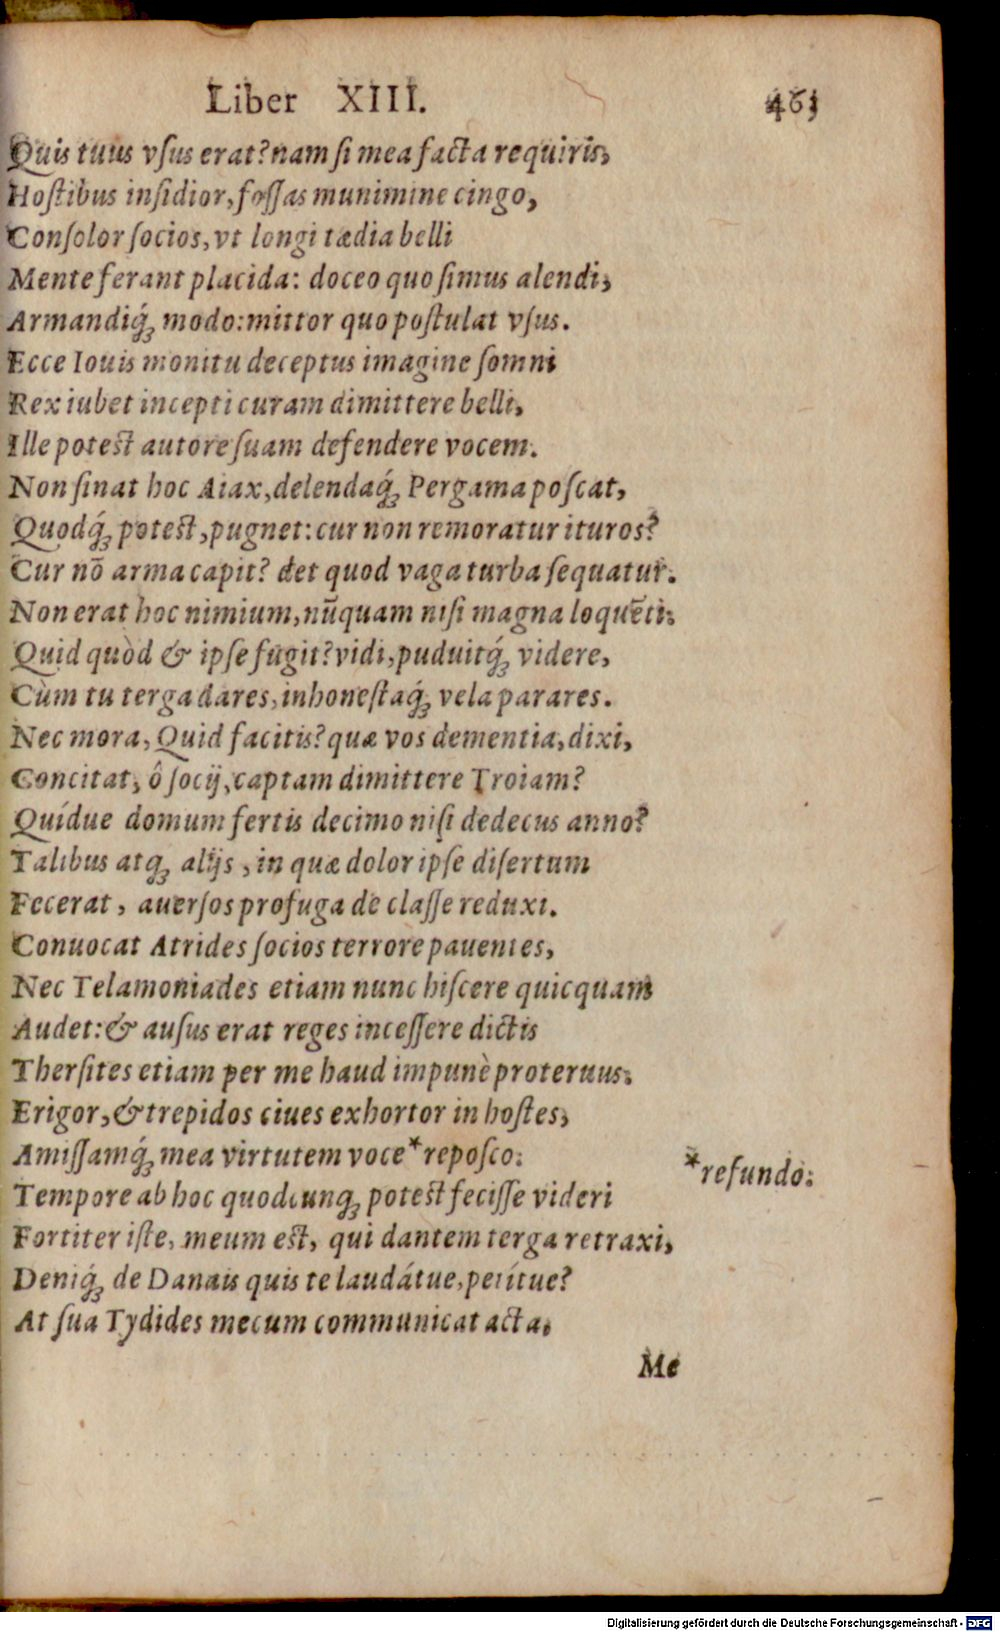 Liber XIII. 463
Quis tuus vſus erat? nam ſi mea facta requiris,
Hoſtibus inſidior, foſſas munimine cingo,
Conſolor ſocios, vt longi tædia belli
Mente ferant placida: doceo quo ſimus alendi,
Armandiq́ꝫ modo: mittor quo poſtulat vſus.
Ecce Iouis monitu deceptus imagine ſomni
Rex iubet incepti curam dimittere belli,
Ille poteſt autore ſuam defendere vocem.
Non ſinat hoc Aiax, delendaq́ꝫ Pergama poſcat,
Quodq́ꝫ poteſt, pugnet: cur non remoratur ituros?
Cur nō arma capit? det quod vaga turba ſequatur.
Non erat hoc nimium, nūquam niſi magna loquēti:
Quid quòd & ipſe fugit? vidi, puduitq́ꝫ videre,
Cùm tu terga dares, inhoneſtaq́ꝫ vela parares.
Nec mora, Quid facitis? quæ vos dementia, dixi,
Concitat, ô ſocij, captam dimittere Troiam?
Quídue domum fertis decimo niſi dedecus anno?
Talibus atqꝫ alijs, in quæ dolor ipſe diſertum
Fecerat, auerſos profuga de claſſe reduxi.
Conuocat Atrides ſocios terrore pauentes,
Nec Telamoniades etiam nunc hiſcere quicquam
Audet: & auſus erat reges inceſſere dictis
Therſites etiam per me haud impunè proteruus.
Erigor, & trepidos ciues exhortor in hoſtes,
Amiſſamq́ꝫ mea virtutem voce *repoſco:
*refundo:
Tempore ab hoc quodcunqꝫ poteſt feciſſe videri
Fortiter iſte, meum eſt, qui dantem terga retraxi,
Deniq́ꝫ de Danais quis te laudátue, petítue?
At ſua Tydides mecum communicat acta,
Me
Digitalisierung gefördert durch die Deutsche Forschungsgemeinschaft - DFG